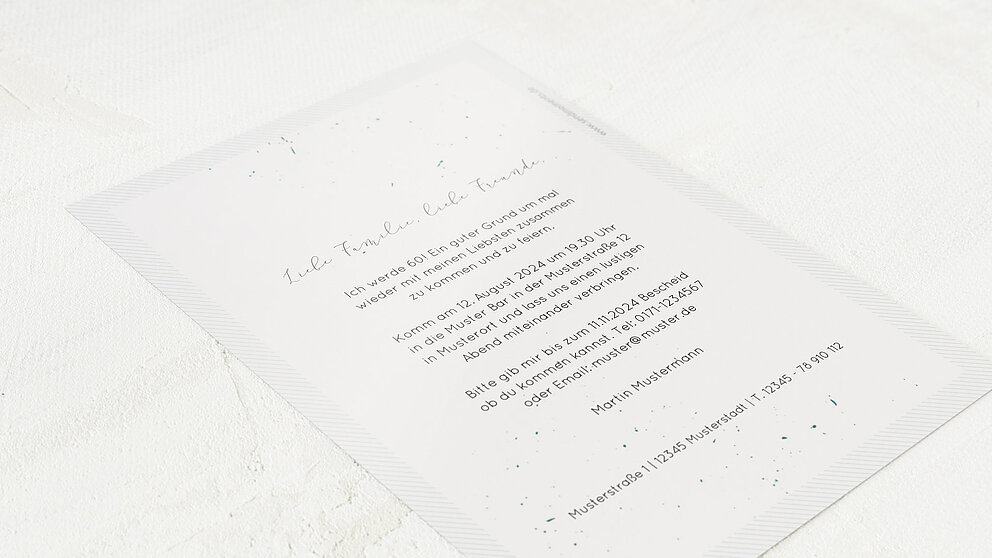 Liebe Familie, liebe Freunde,
Ich werde 60! Ein guter Grund um mal
wieder mit meinen Liebsten zusammen
zu kommen und zu feiern.
Komm am 12. August 2024 um 19.30 Uhr
in die Muster Bar in der Musterstraße 12
in Musterort und lass uns einen lustigen
Abend miteinander verbringen.
Bitte gib mir bis zum 11.11.2024 Bescheid
ob du kommen kannst. Tel: 0171-1234567
oder Email: muster@muster.de
Martin Mustermann
Musterstraße 1 | 12345 Musterstadt | T. 12345 - 78 910 112